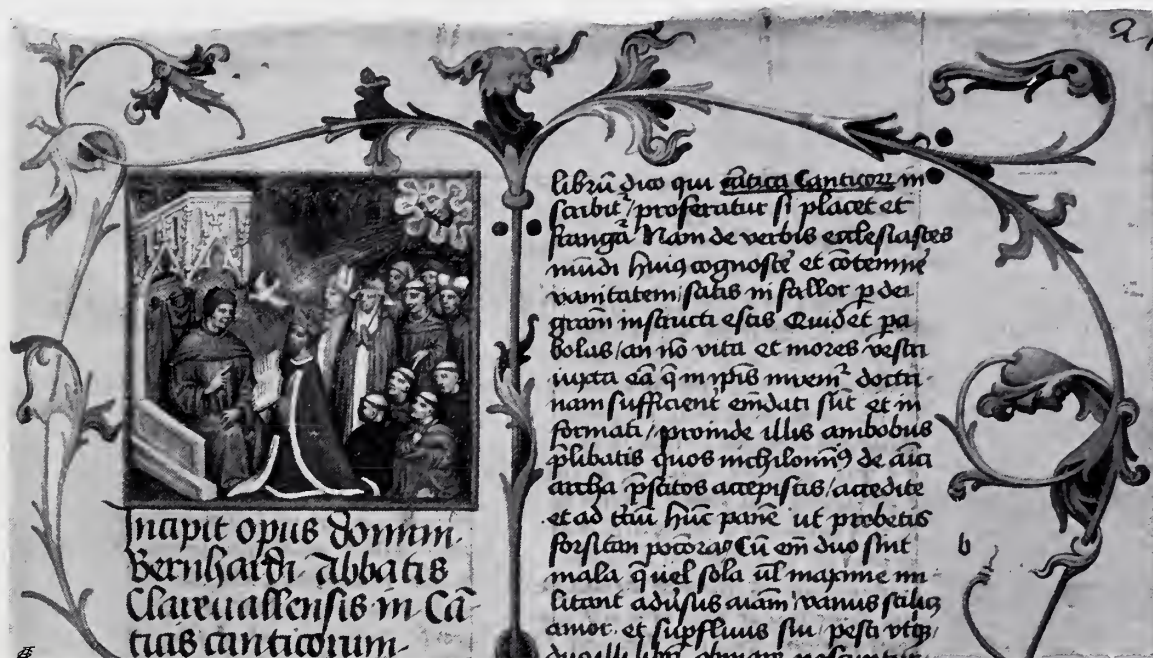 Incipit opus domini
Bernhardi Abbatis
Clareuallensis in Cā
ticis canticorum
librū dico qui cātica Canticoꝝ in
scribit᷑/ proferatur si placet et
frangat᷑ Nam de verbis ecclesiastes
mūdi huiꝯ cognosce᷑ et cōtemne᷑
vanitatem/ satis ni fallor ꝑ dei
gr̄am instructi estis Quid et ꝑa
bolas/ an nō vita et mores vestri
iuxta eā q̄ in ip̄is inueni᷑ doctri
nam sufficient᷑ em̄dati sūt et in
formati/ proinde illis ambobus
p̄libatis quos nichilomīꝯ de amici
archa p̄stitos accepistis/ accedite
et ad t̄ciū hūc panē ut probetis
forsitan pociora Cū em̄ duo sint
mala q̄ uel sola ul̄ maxime mi
litant adūsus aīam/ vanus scilicꝫ
amor et suꝑfluus sui/ pesti vtqꝫ
b